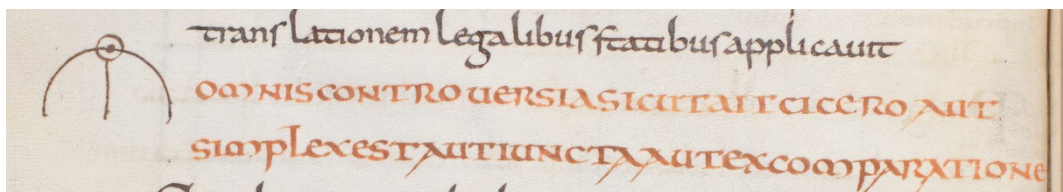 translationem legalibus statibus applicauit
OMNIS CONTROUERSIA SICUT AIT CICERO AUT
SIMPLEX EST AUT IUNCTA AUT EX COMPARATIONE